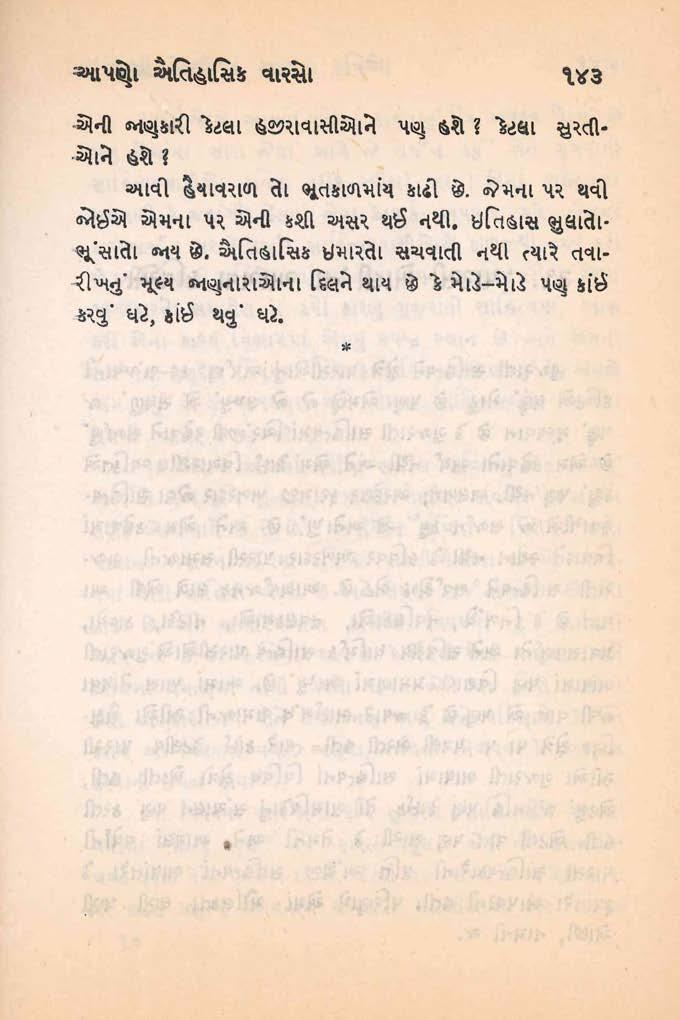 આપણો ઐતિહાસિક વારસો ૧૪૩
એની જાણકારી કેટલા હજીરાવાસીઓને પણ હશે ? કેટલા સુરતી-
ઓને હશે ?
આવી હૈયાવરાળ તો ભૂતકાળમાંય કાઢી છે. જેમના પર થવી
જોઈએ એમના પર એની કશી અસર થઈ નથી. ઇતિહાસ ભુલાતો-
ભૂંસાતો જાય છે. ઐતિહાસિક ઇમારતો સચવાતી નથી ત્યારે તવા-
રીખનું મૂલ્ય જાણનારાઓના દિલને થાય છે કે મોડે–મોડે પણ કાંઈ
કરવું ઘટે, કાંઈ થવું ઘટે.
*